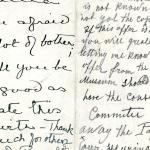 afraid
lot of bother
ll you be
good as
ate this
Thank
much for
is not known
not got the cop
if this offer is
you will greatl
letting me know
offer from the
Museum should
have the cons
Committee
away the